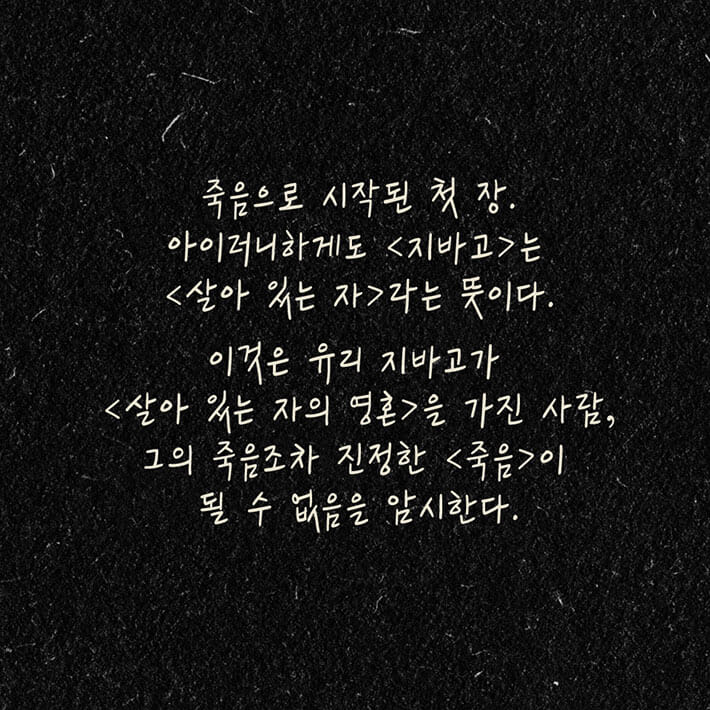 죽음으로 시작된 첫 장.
아이러니하게도 <지바고>는
<살아 있는 자>라는 뜻이다.
이것은 유리 지바고가
<살아 있는 자의 영혼>을 가진 사람,
그의 죽음조차 진정한 <죽음>이
될 수 없음을 암시한다.